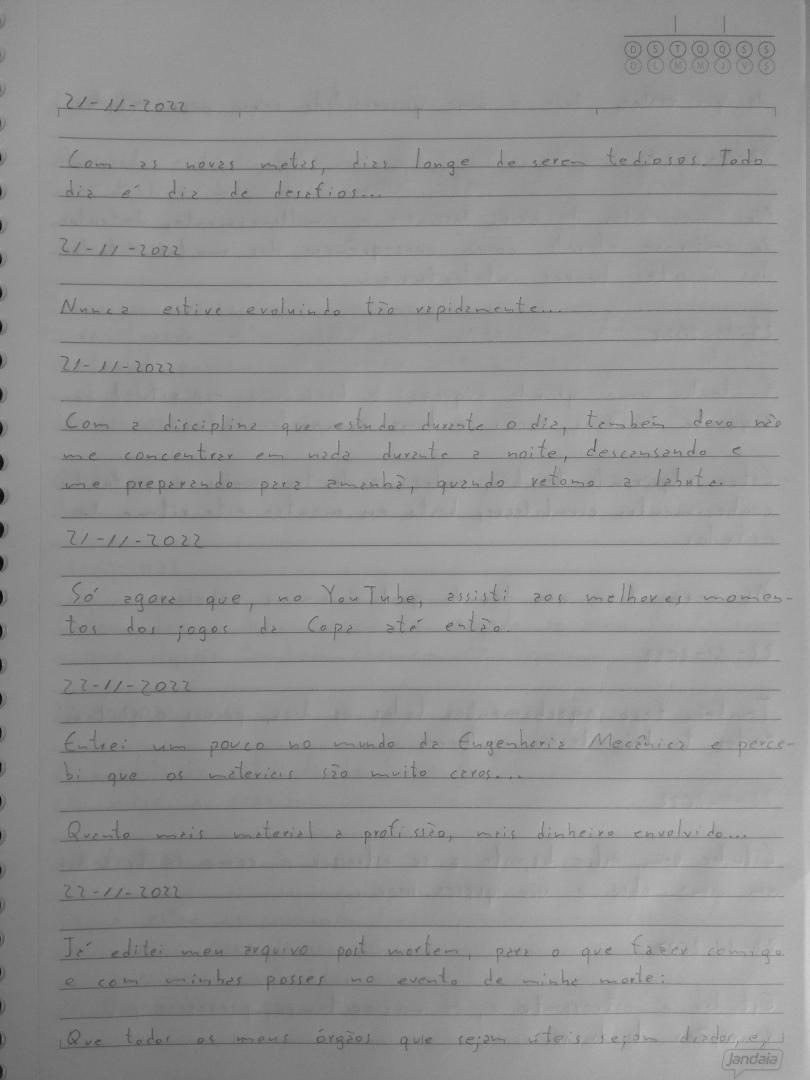 D S T Q Q S S
D L M M J V S
21-11-2022
Com as novas metas, dias longe de serem tediosos. Todo
dia é dia de desafios...
21-11-2022
Nunca estive evoluindo tão rapidamente...
21-11-2022
Com a disciplina que estudo durante o dia, também devo não
me concentrar em nada durante a noite, descansando e
me preparando para amanhã, quando retomo a labuta.
21-11-2022
Só agora que, no YouTube, assisti aos melhores momen-
tos dos jogos da Copa até então.
22-11-2022
Entrei um pouco no mundo da Engenharia Mecânica e perce-
bi que os materiais são muito caros...
Quanto mais material a profissão, mais dinheiro envolvido...
22-11-2022
Já editei meu arquivo post mortem, para o que fazer comigo
e com minhas posses no evento de minha morte:
Que todos os meus órgãos que sejam úteis sejam doados, e,
jandaia